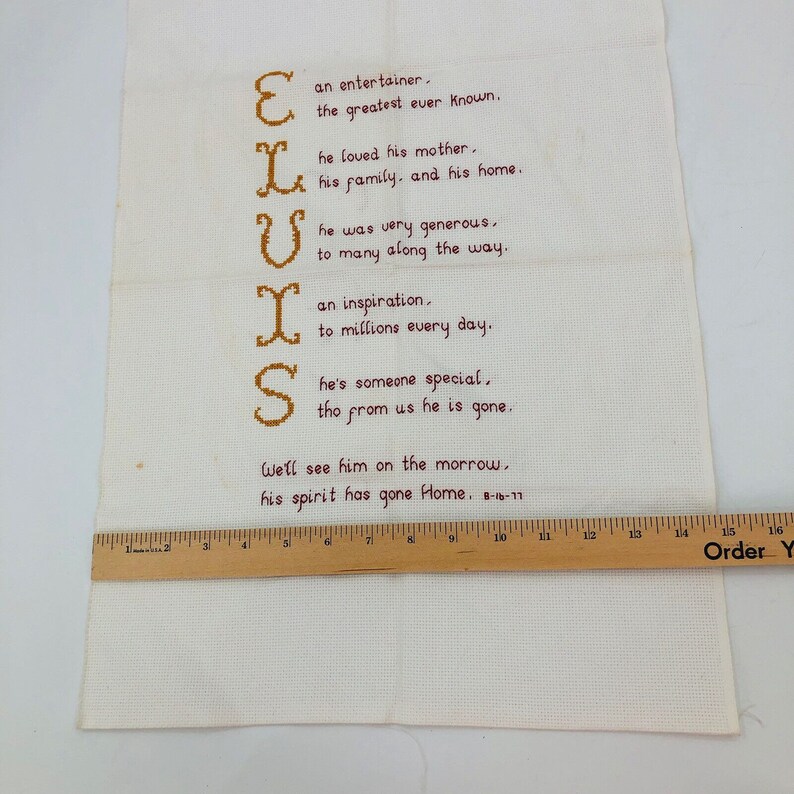 E an entertainer,
the greatest ever known.
L he loved his mother,
his family, and his home.
V he was very generous,
to many along the way.
I an inspiration,
to millions every day.
S he's someone special,
tho from us he is gone.
We'll see him on the morrow,
his spirit has gone Home. 8-16-77
1 2 3 4 5 6 7 8 9 10 11 12 13 14 15 16
Made in U.S.A.
Order Y